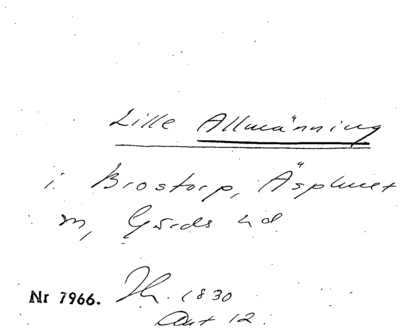 Lille Allmänning
i Brostorp, Äsphult
m, Gärds hd.
Nr 7966. Jh. 1830
Akt 12.